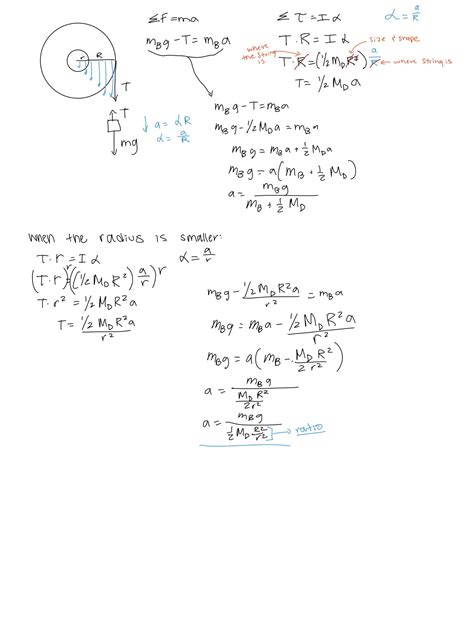 ΣF=ma
m_B g - T = m_B a
Στ = Iα
α = a/R
T·R = Iα
where the string is
size & shape
T·R = (1/2 M_D R²) a/R ← where string is
T = 1/2 M_D a
R
T
T
mg
↓ a = αR
α = a/R
m_B g - T = m_B a
m_B g - 1/2 M_D a = m_B a
m_B g = m_B a + 1/2 M_D a
m_B g = a(m_B + 1/2 M_D)
a = m_B g / (m_B + 1/2 M_D)
when the radius is smaller:
T·r = Iα
α = a/r
(T·r)^r = ((1/2 M_D R²) a/r) r
T·r² = 1/2 M_D R² a
T = 1/2 M_D R² a / r²
m_B g - 1/2 M_D R² a / r² = m_B a
m_B g = m_B a - 1/2 M_D R² a / r²
m_B g = a(m_B - M_D R² / 2r²)
a = m_B g / (M_D R² / 2r²)
a = m_B g / (1/2 M_D R²/r²) → ratio